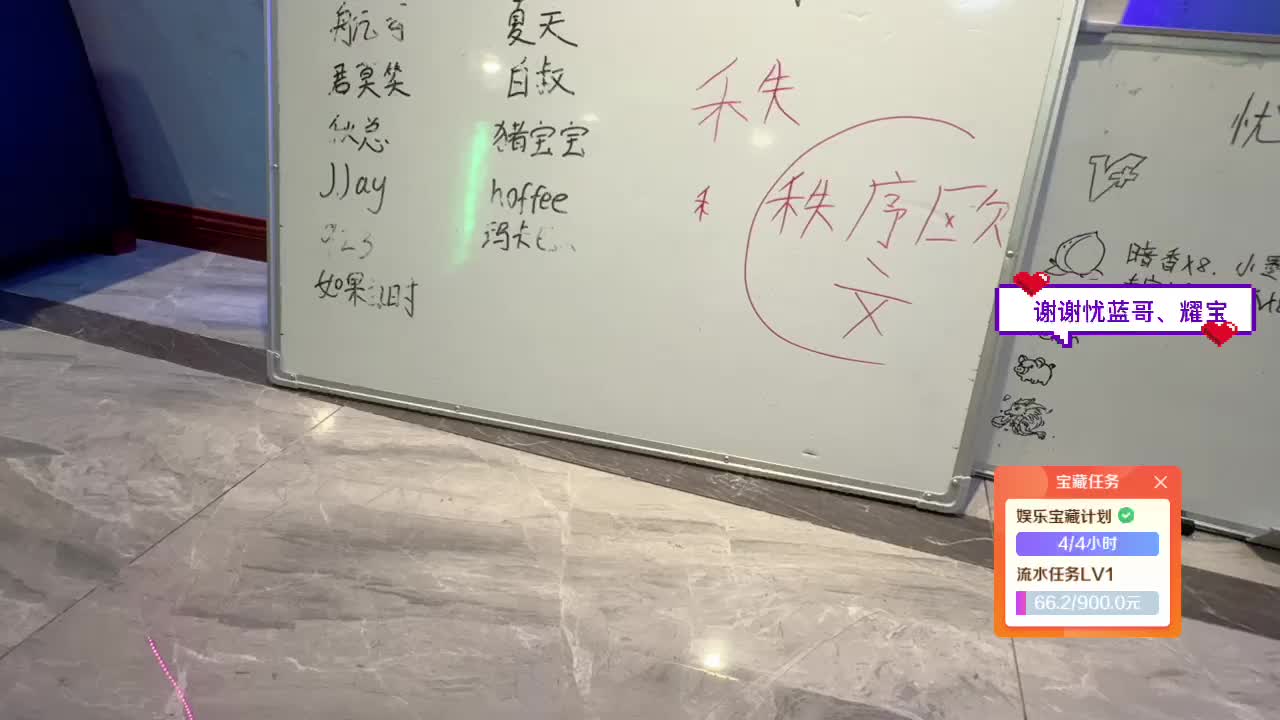 夏天
君莫笑
白叔
伙总
猪宝宝
JJay
hoffee
玛卡
923
如果 旧时
秩
秩序区欠
文
忧
暗香x8. 小墨
谢谢忧蓝哥、耀宝
宝藏任务
娱乐宝藏计划
4/4小时
流水任务LV1
66.2/900.0元